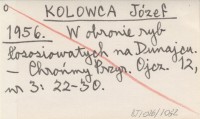 KOLOWCA Józef
1956. W obronie ryb
łososiowatych na Dunajcu.
— Chrońmy Przyr. Ojcz. 12,
nr 3: 22-30.